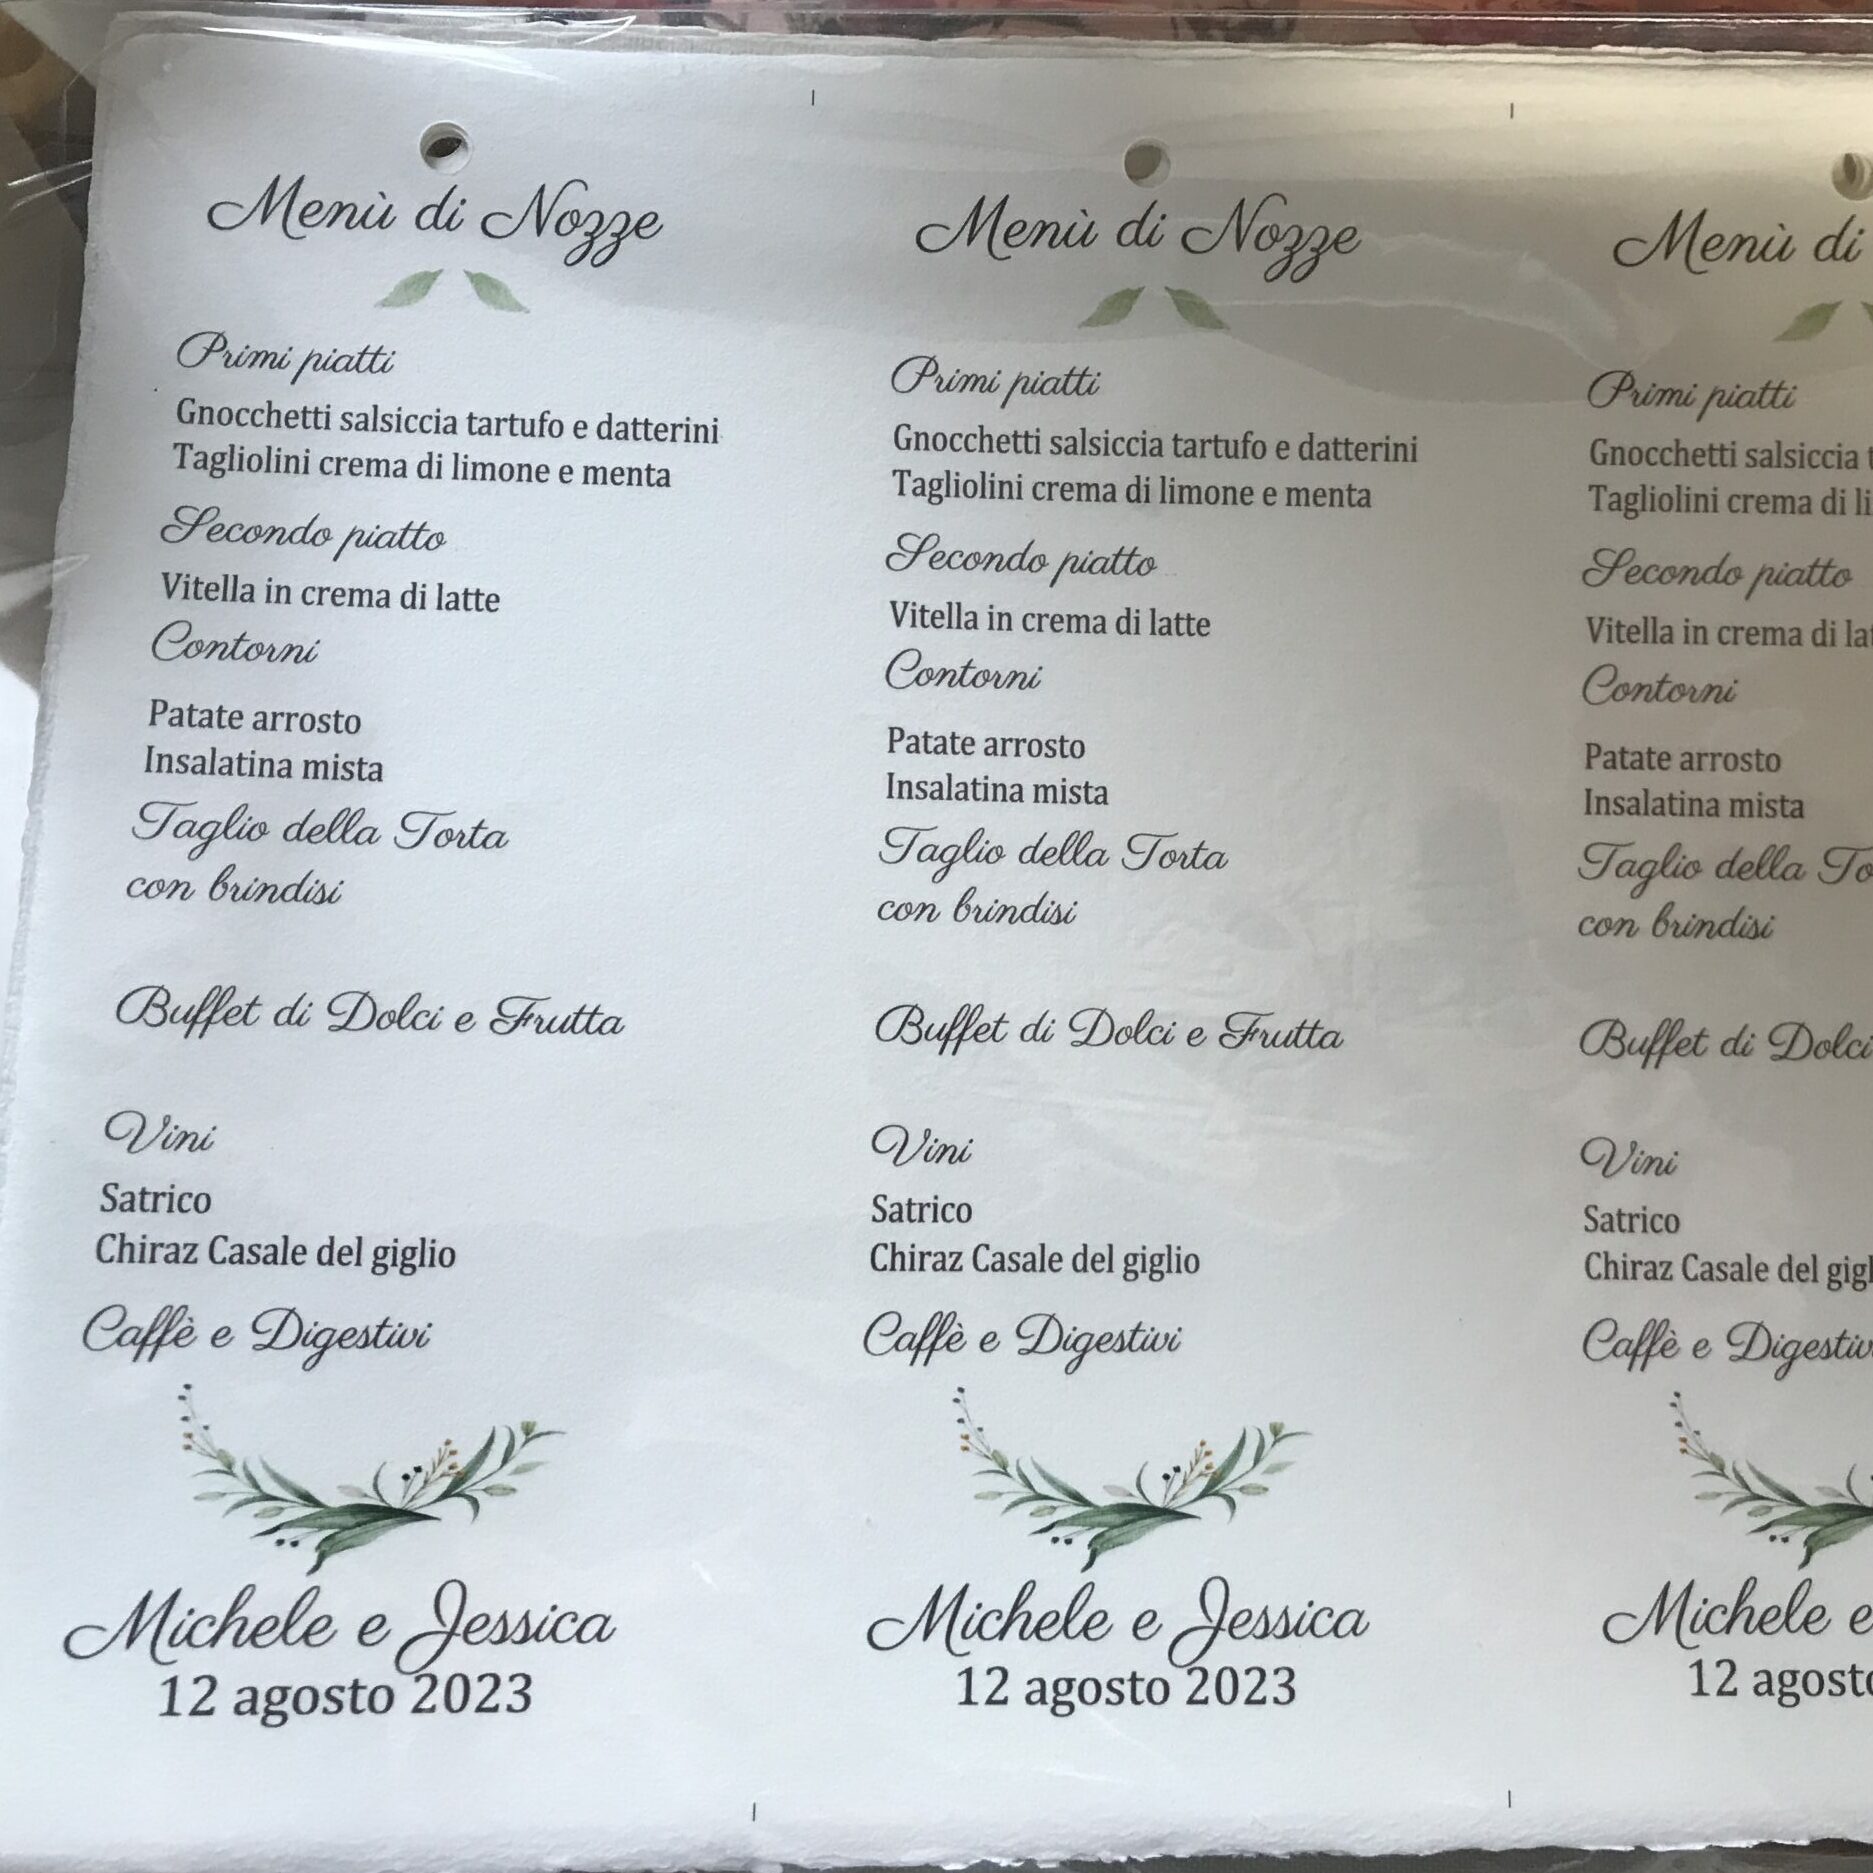 Menù di Nozze
Primi piatti
Gnocchetti salsiccia tartufo e datterini
Tagliolini crema di limone e menta
Secondo piatto
Vitella in crema di latte
Contorni
Patate arrosto
Insalatina mista
Taglio della Torta
con brindisi
Buffet di Dolci e Frutta
Vini
Satrico
Chiraz Casale del giglio
Caffè e Digestivi
Michele e Jessica
12 agosto 2023
Menù di Nozze
Primi piatti
Gnocchetti salsiccia tartufo e datterini
Tagliolini crema di limone e menta
Secondo piatto
Vitella in crema di latte
Contorni
Patate arrosto
Insalatina mista
Taglio della Torta
con brindisi
Buffet di Dolci e Frutta
Vini
Satrico
Chiraz Casale del giglio
Caffè e Digestivi
Michele e Jessica
12 agosto 2023
Menù di
Primi piatti
Gnocchetti salsiccia
Tagliolini crema di
Secondo piatto
Vitella in crema di
Contorni
Patate arrosto
Insalatina mista
Taglio della
con brindisi
Buffet di Dolci
Vini
Satrico
Chiraz Casale del
Caffè e
Michele e
12